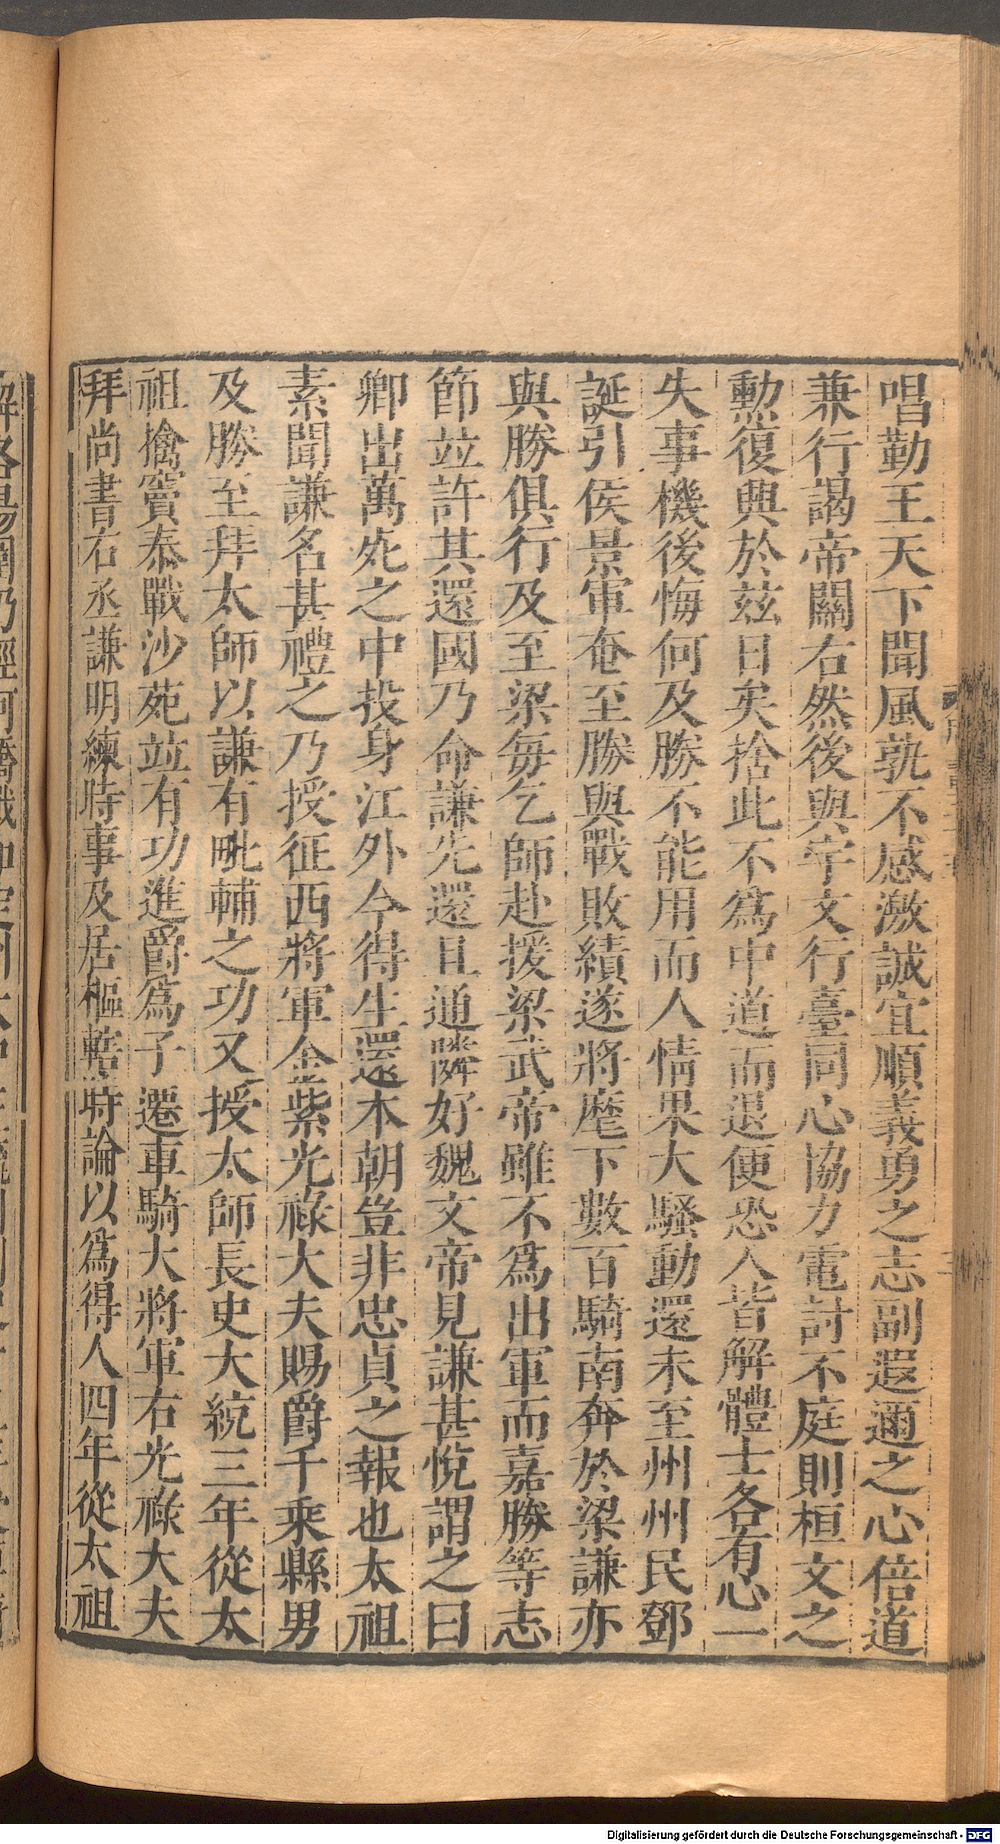 唱勤王天下聞風孰不感激誠宜順義勇之志副遐邇之心倍道
兼行謁帝關右然後與宇文行臺同心協力電討不庭則桓文之
勲復興於兹日矣捨此不爲中道而退便恐人皆解體士各有心一
失事機後悔何及勝不能用而人情果大騷動還未至州州民鄧
誕引侯景軍奄至勝與戰敗績遂將麾下數百騎南奔於梁謙亦
與勝俱行及至梁每乞師赴援梁武帝雖不爲出軍而嘉勝等志
節竝許其還國乃命謙先還且通隣好魏文帝見謙甚悅謂之曰
卿出萬死之中投身江外今得生還本朝豈非忠貞之報也太祖
素聞謙名甚禮之乃授征西將軍金紫光祿大夫賜爵千乘縣男
及勝至拜太師以謙有毗輔之功又授太師長史大統三年從太
祖擒竇泰戰沙苑竝有功進爵爲子遷車騎大將軍右光祿大夫
拜尚書右丞謙明練時事及居樞轄時論以爲得人四年從太祖
解洛陽圍乃經河橋戰
Digitalisierung gefördert durch die Deutsche Forschungsgemeinschaft - DFG